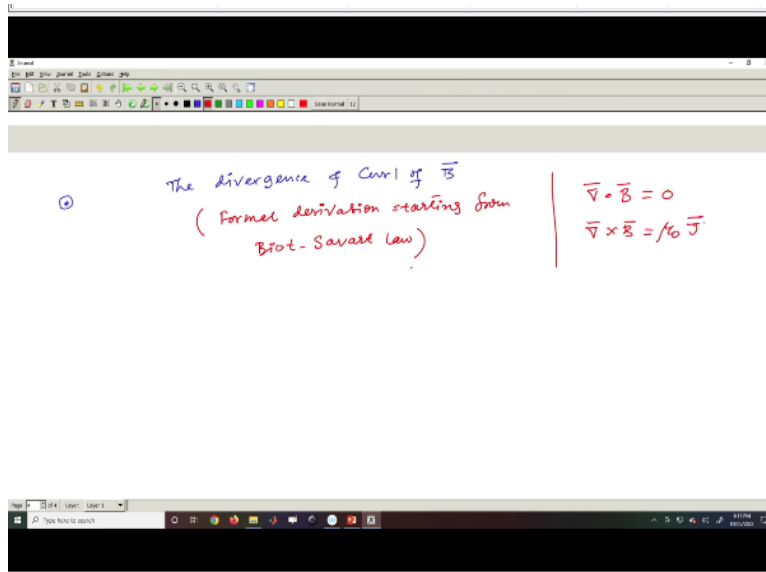 Journal
File Edit View Journal Tools Options Help
Sans Normal 12
The divergence of Curl of B̅
( Formal derivation starting from
Biot-Savart Law)
∇̅ • B̅ = 0
∇̅ × B̅ = μ₀ J̅
Page 4 of 4 Layer: Layer 1
Type here to search